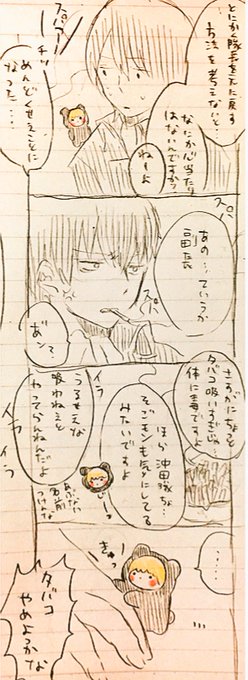 とにかく隊長を元に戻す
方法を考えないと。
なにか心当たり
はないんですか?
ねーよ
スパァー
チッ
めんどくせえことに
なった…
スパ
あの…ていうか
副長
スパ
あン?
さすがにちょっと
タバコ吸いすぎじゃ…
体に毒ですよ
ほら
沖田隊ちょ…
そごモンも気にしてる
みたいですよ
じーっ
イラ
うるせえな
吸わねえと
やってらんねんだよ
イラ
イラ
…
きゅっ
…
タバコ
やめようかな